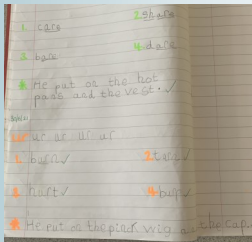 1. care 2. share
3. bare 4. dare
He put on the hot
pans and the vest.
ur ur ur ur
1. burn 2. turn
3. hurt 4. burp
He put on the pink wig and the cap